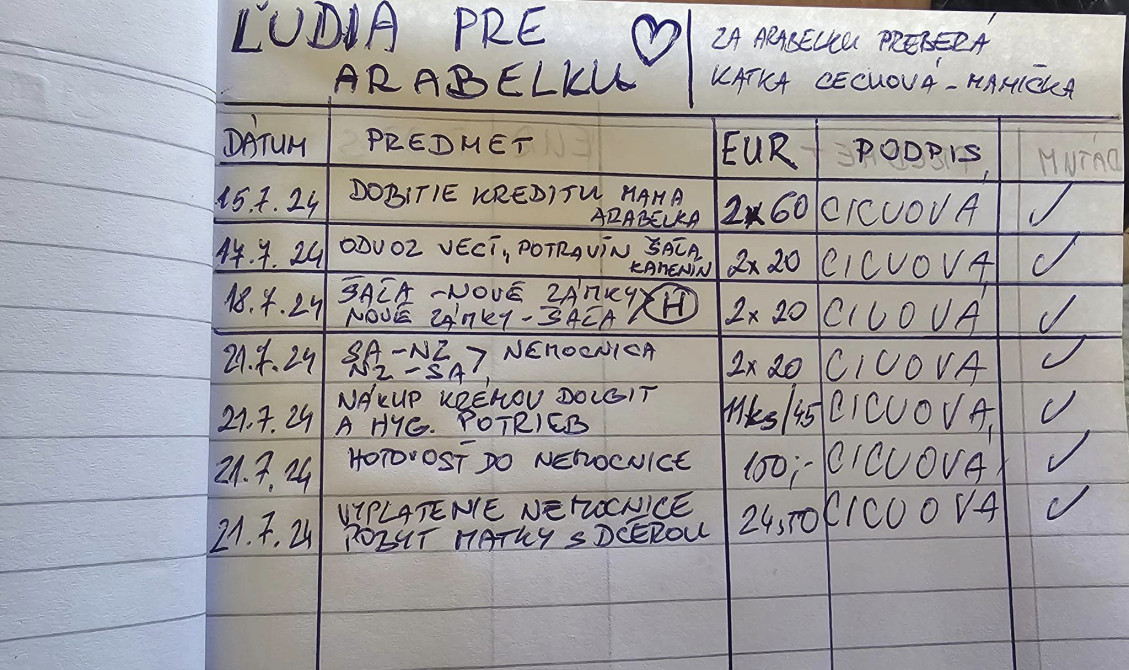 ĽUDIA PRE
ARABELKU
ZA ARABELKU PREBERÁ
KATKA CECUOVÁ - MAMIČKA
DÁTUM PREDMET EUR PODPIS
15.7.24 DOBITIE KREDITU MAMA
ARABELKA 2x60 CICUOVÁ ✓
17.7.24 ODVOZ VECÍ, POTRAVÍN ŠAĽA
KAMENÍN 2x20 CICUOVÁ ✓
18.7.24 ŠAĽA - NOVÉ ZÁMKY
NOVÉ ZÁMKY - ŠAĽA > H 2x20 CICUOVÁ ✓
21.7.24 SA - NZ > NEMOCNICA
NZ - SA 2x20 CICUOVÁ ✓
21.7.24 NÁKUP KRÉMOV DOLGIT
A HYG. POTRIEB 11ks/45 CICUOVÁ ✓
21.7.24 HOTOVOSŤ DO NEMOCNICE 100,- CICUOVÁ ✓
21.7.24 VYPLATENIE NEMOCNICE
POBYT MATKY S DCÉROU 24,50 CICUOVÁ ✓